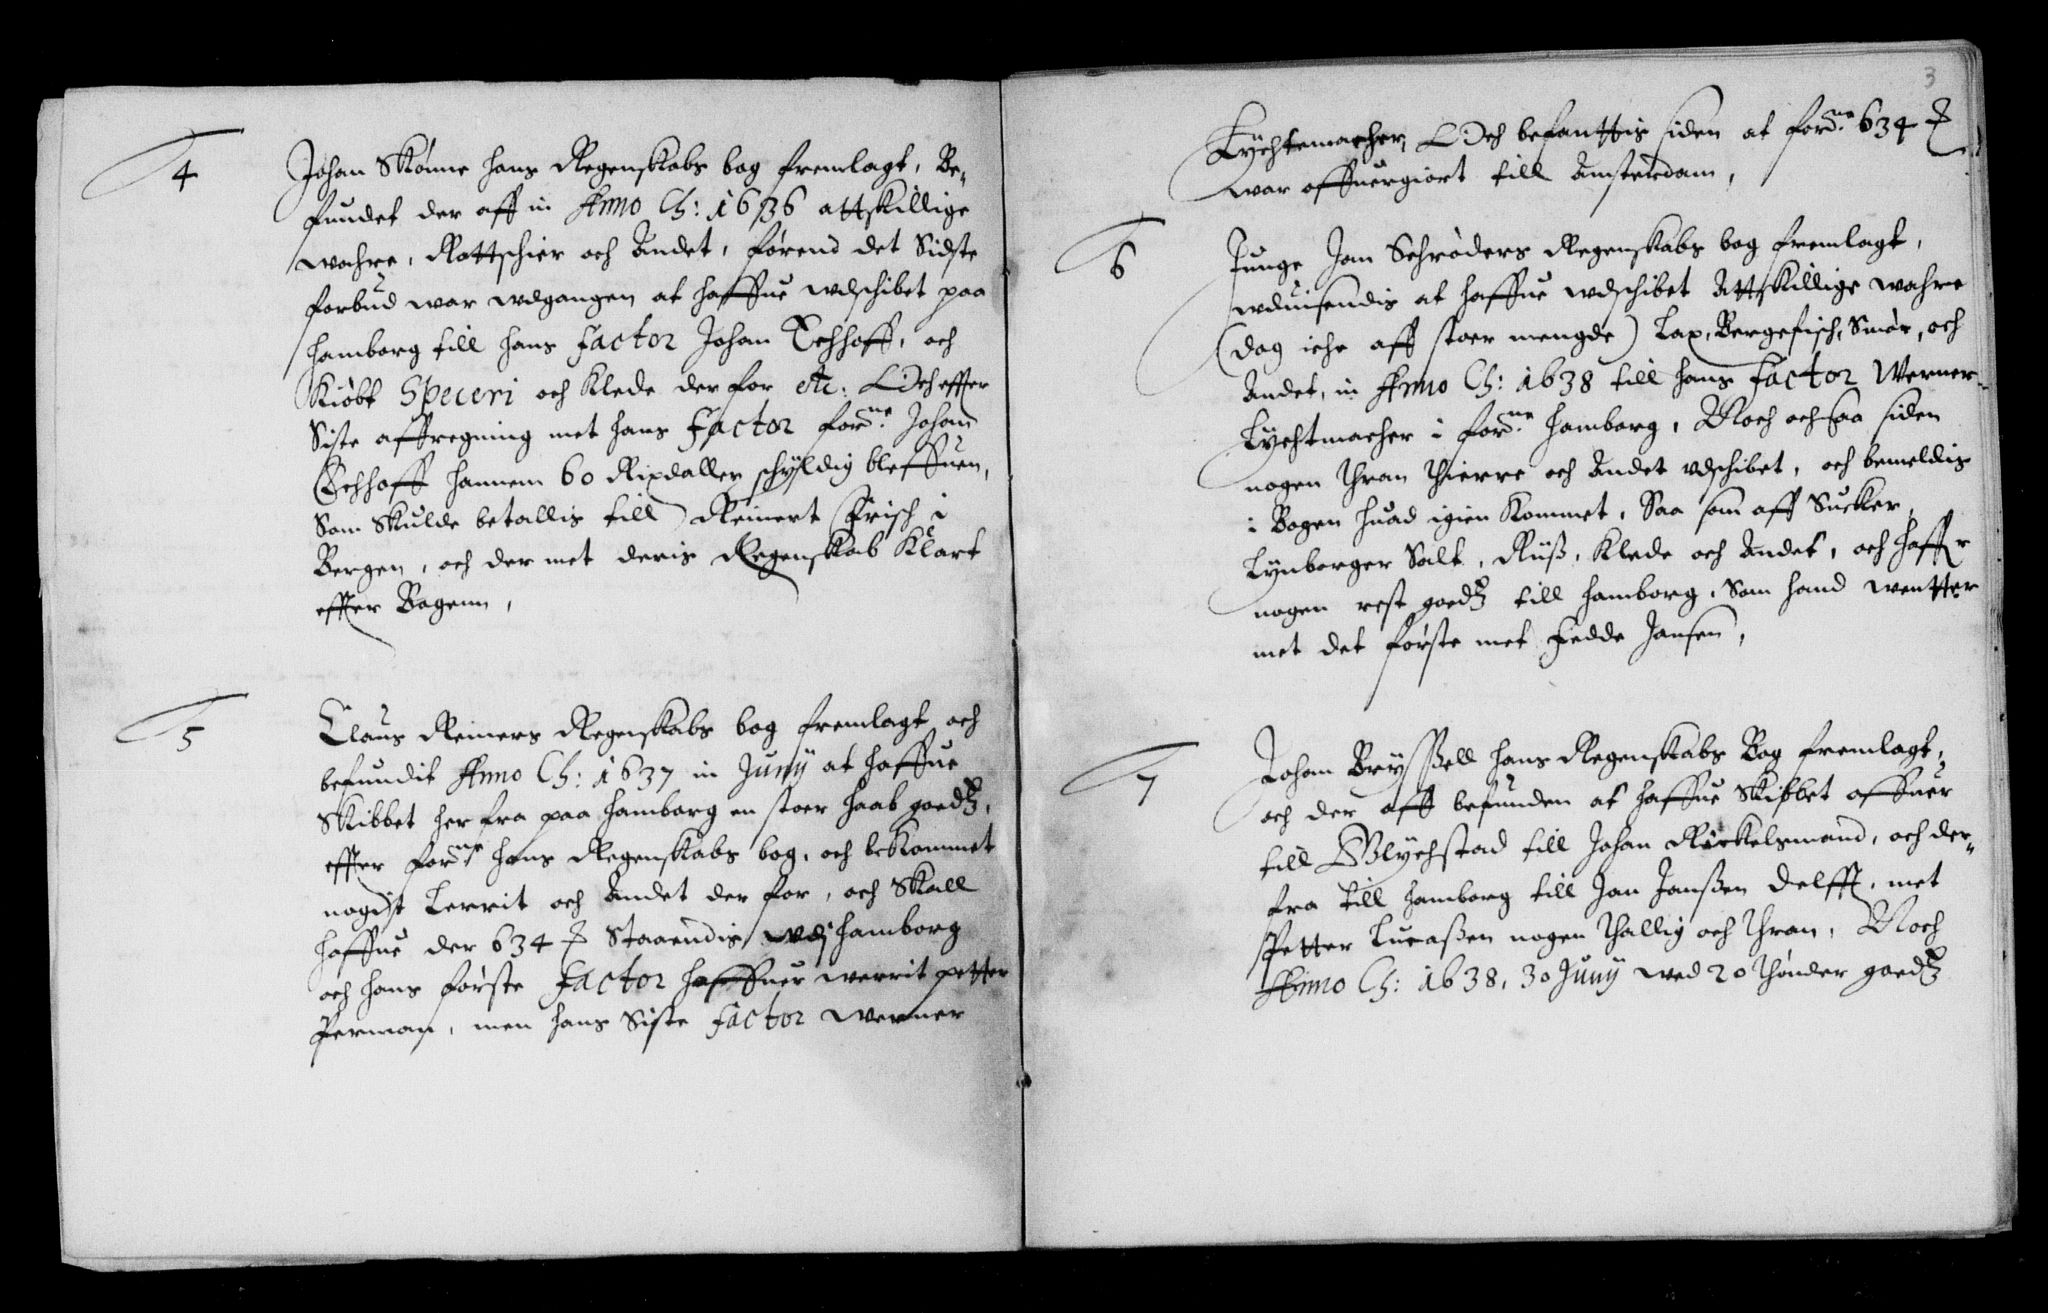 4
Johan Skønne hans Regenskabs bog fremlagt, Be-
fundet der aff in Anno Ch: 1636 attskillige
wahre, Rottschier och Andet, førend det Sidste
forbud war udgangen at haffue udschibet paa
Hamborg till hans Factor Johan Echhoff, och
Kiøbt Speceri och Klede der for etc: Och effter
Siste affregning met hans Factor forne: Johan
Echhoff hannem 60 Rixdaller schyldig bleffuen,
Som Skulde betallis till Reinert Frisch i
Bergen, och der met deris Regenskab Klart
effter Bogenn,
5
Claus Reiners Regenskabs bog fremlagt och
befundit Anno Ch: 1637 in Junij at haffue
Skibbet her fra paa Hamborg en stoer haab goedtz,
effter forne hans Regenskabs bog, och bekommet
nogit Lerrit och Andet der for, och Skall
haffue der 634 Staaendis udj Hamborg
och hans første Factor haffuer werrit petter
Perman, men hans Siste Factor werner
3
Lychtemacher, Och befanttis siden at forne: 634
war offuergiort till Amsterdam,
6
Junge Jan Schrøders Regenskabs bog fremlagt,
uduisendis at haffue udschibet Attskillige wahre
(dog iche aff stoer mengde) Lax, Bergefisch, Smør, och
Andet, in Anno Ch: 1638 till hans Factor Werner
Lychtmacher i forne: Hamborg, Noch och saa siden
nogen Thran Thierre och Andet udschibet, och bemeldis
i Bogen huad igien kommet, Saa som aff Sucker,
Lynborger Salt, Rüß, Klede och Andet, och haffer
nogen rest goedtz till Hamborg, Som hand wentter
met det første met Fedde Jansen,
7
Johan Bryssell hans Regenskabs Bog fremlagt,
och der aff befunden at haffue Skibbet offuer
till Glychstad till Johan Röckelsmand, och der-
fra till Hamborg till Jan Janßen Delfft, met
Petter Lucaßen nogen Thallig och Thran, Noch
Anno Ch: 1638, 30 Junij wed 20 Thønder goedtz